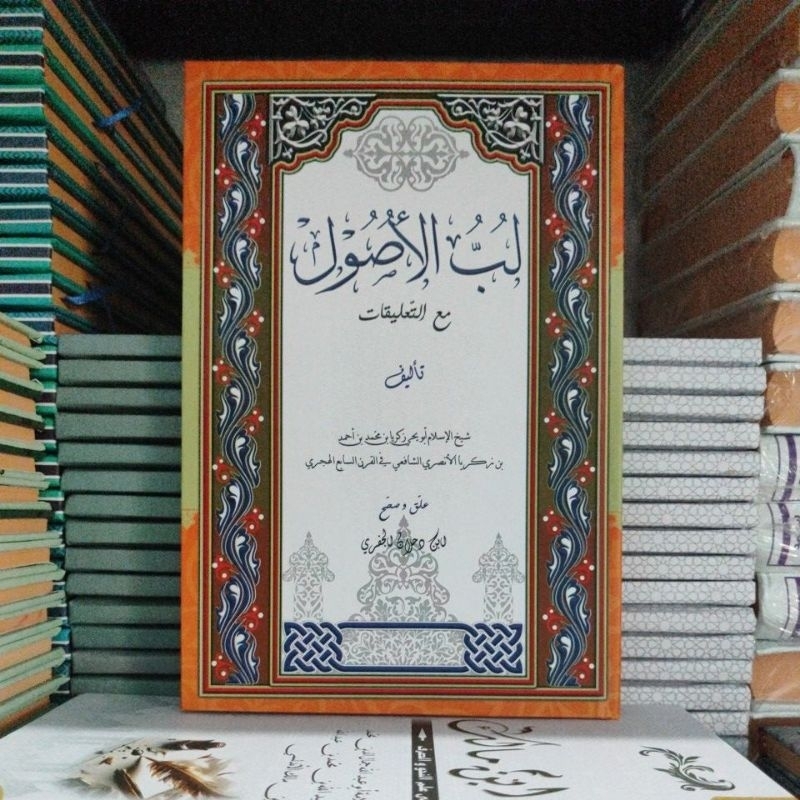 لُبُّ الأُصُوْلِ
مع التعليقات
تأليف
شيخ الإسلام أبو يحي زكريا بن محمد بن أحمد
بن زكريا الأنصري الشافعي في القرن السابع الهجري
علق و صحح
ابن دحلان الجفري